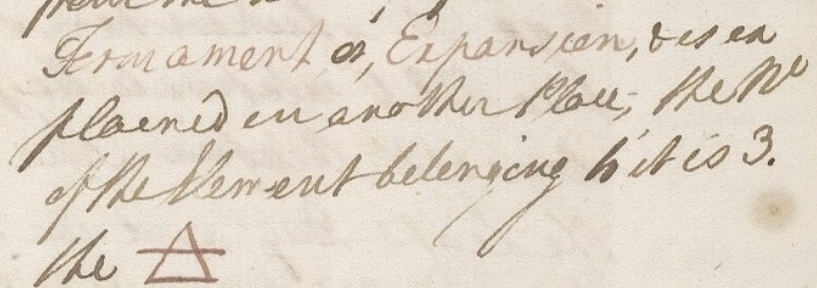 Firmament or, Expansion, & is ex
plained in another Place, the No
of the Element belonging to it is 3.
the 🜁